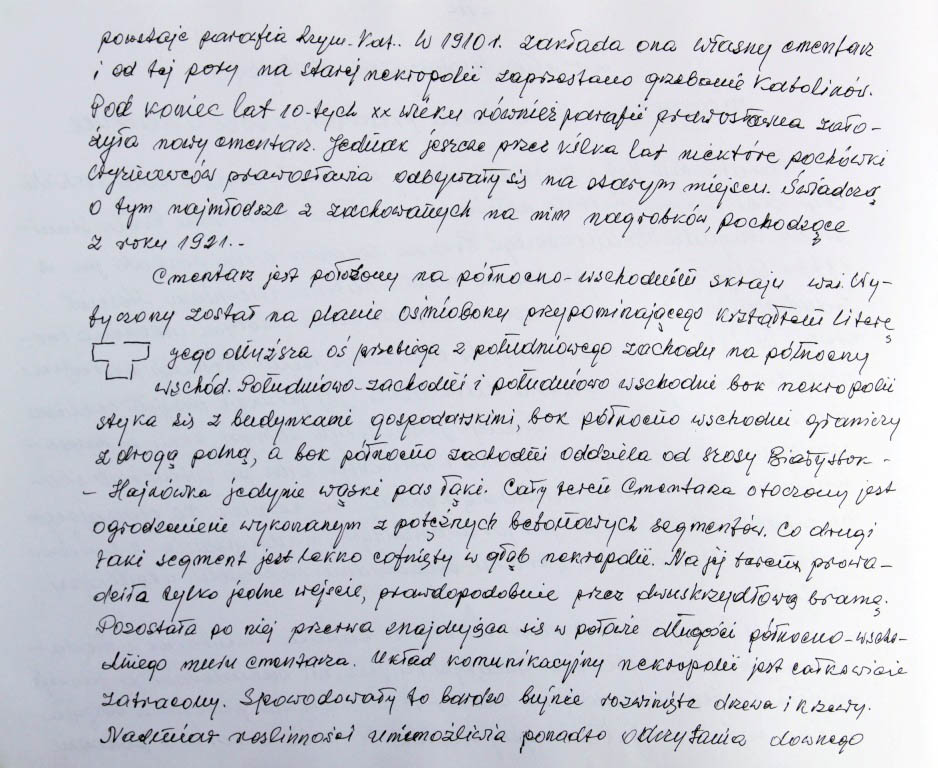 powstaje parafia Rzym.-Kat.. W 1910 r. zakłada ona własny cmentarz
i od tej pory na starej nekropolii zaprzestano grzebanie Katolików.
Pod koniec lat 10-tych XX wieku również parafii prawosławna zało-
żyła nowy cmentarz. Jednak jeszcze przez kilka lat niektóre pochówki
wyznawców prawosławia odbywały się na starym miejscu. Świadczą
o tym najmłodsze z zachowanych na nim nagrobków, pochodzące
z roku 1921.-
Cmentarz jest położony na północno-wschodnim skraju wsi. Wy-
tyczony został na planie ośmioboku przypominającego kształtem literę
jego dłuższa oś przebiega z południowego zachodu na północny
wschód. Południowo-zachodni i południowo wschodni bok nekropolii
styka się z budynkami gospodarskimi, bok północno wschodni graniczy
z drogą polną, a bok północno zachodni oddziela od szosy Białystok -
- Hajnówka jedynie wąski pas łąki. Cały teren Cmentarza otoczony jest
ogrodzeniem wykonanym z potężnych betonowych segmentów. Co drugi
taki segment jest lekko cofnięty w głąb nekropolii. Na jej terenę prowa-
dziła tylko jedne wejście, prawdopodobnie przez dwuskrzydłową bramę.
Pozostała po niej przerwa znajdująca się w połowie długości północno-wscho-
dniego muru cmentarza. Układ komunikacyjny nekropolii jest całkowicie
zatracony. Spowodowały to bardzo bujnie rozwinięte drzewa i krzewy.
Nadmiar roślinności uniemożliwia ponadto odczytania dawnego